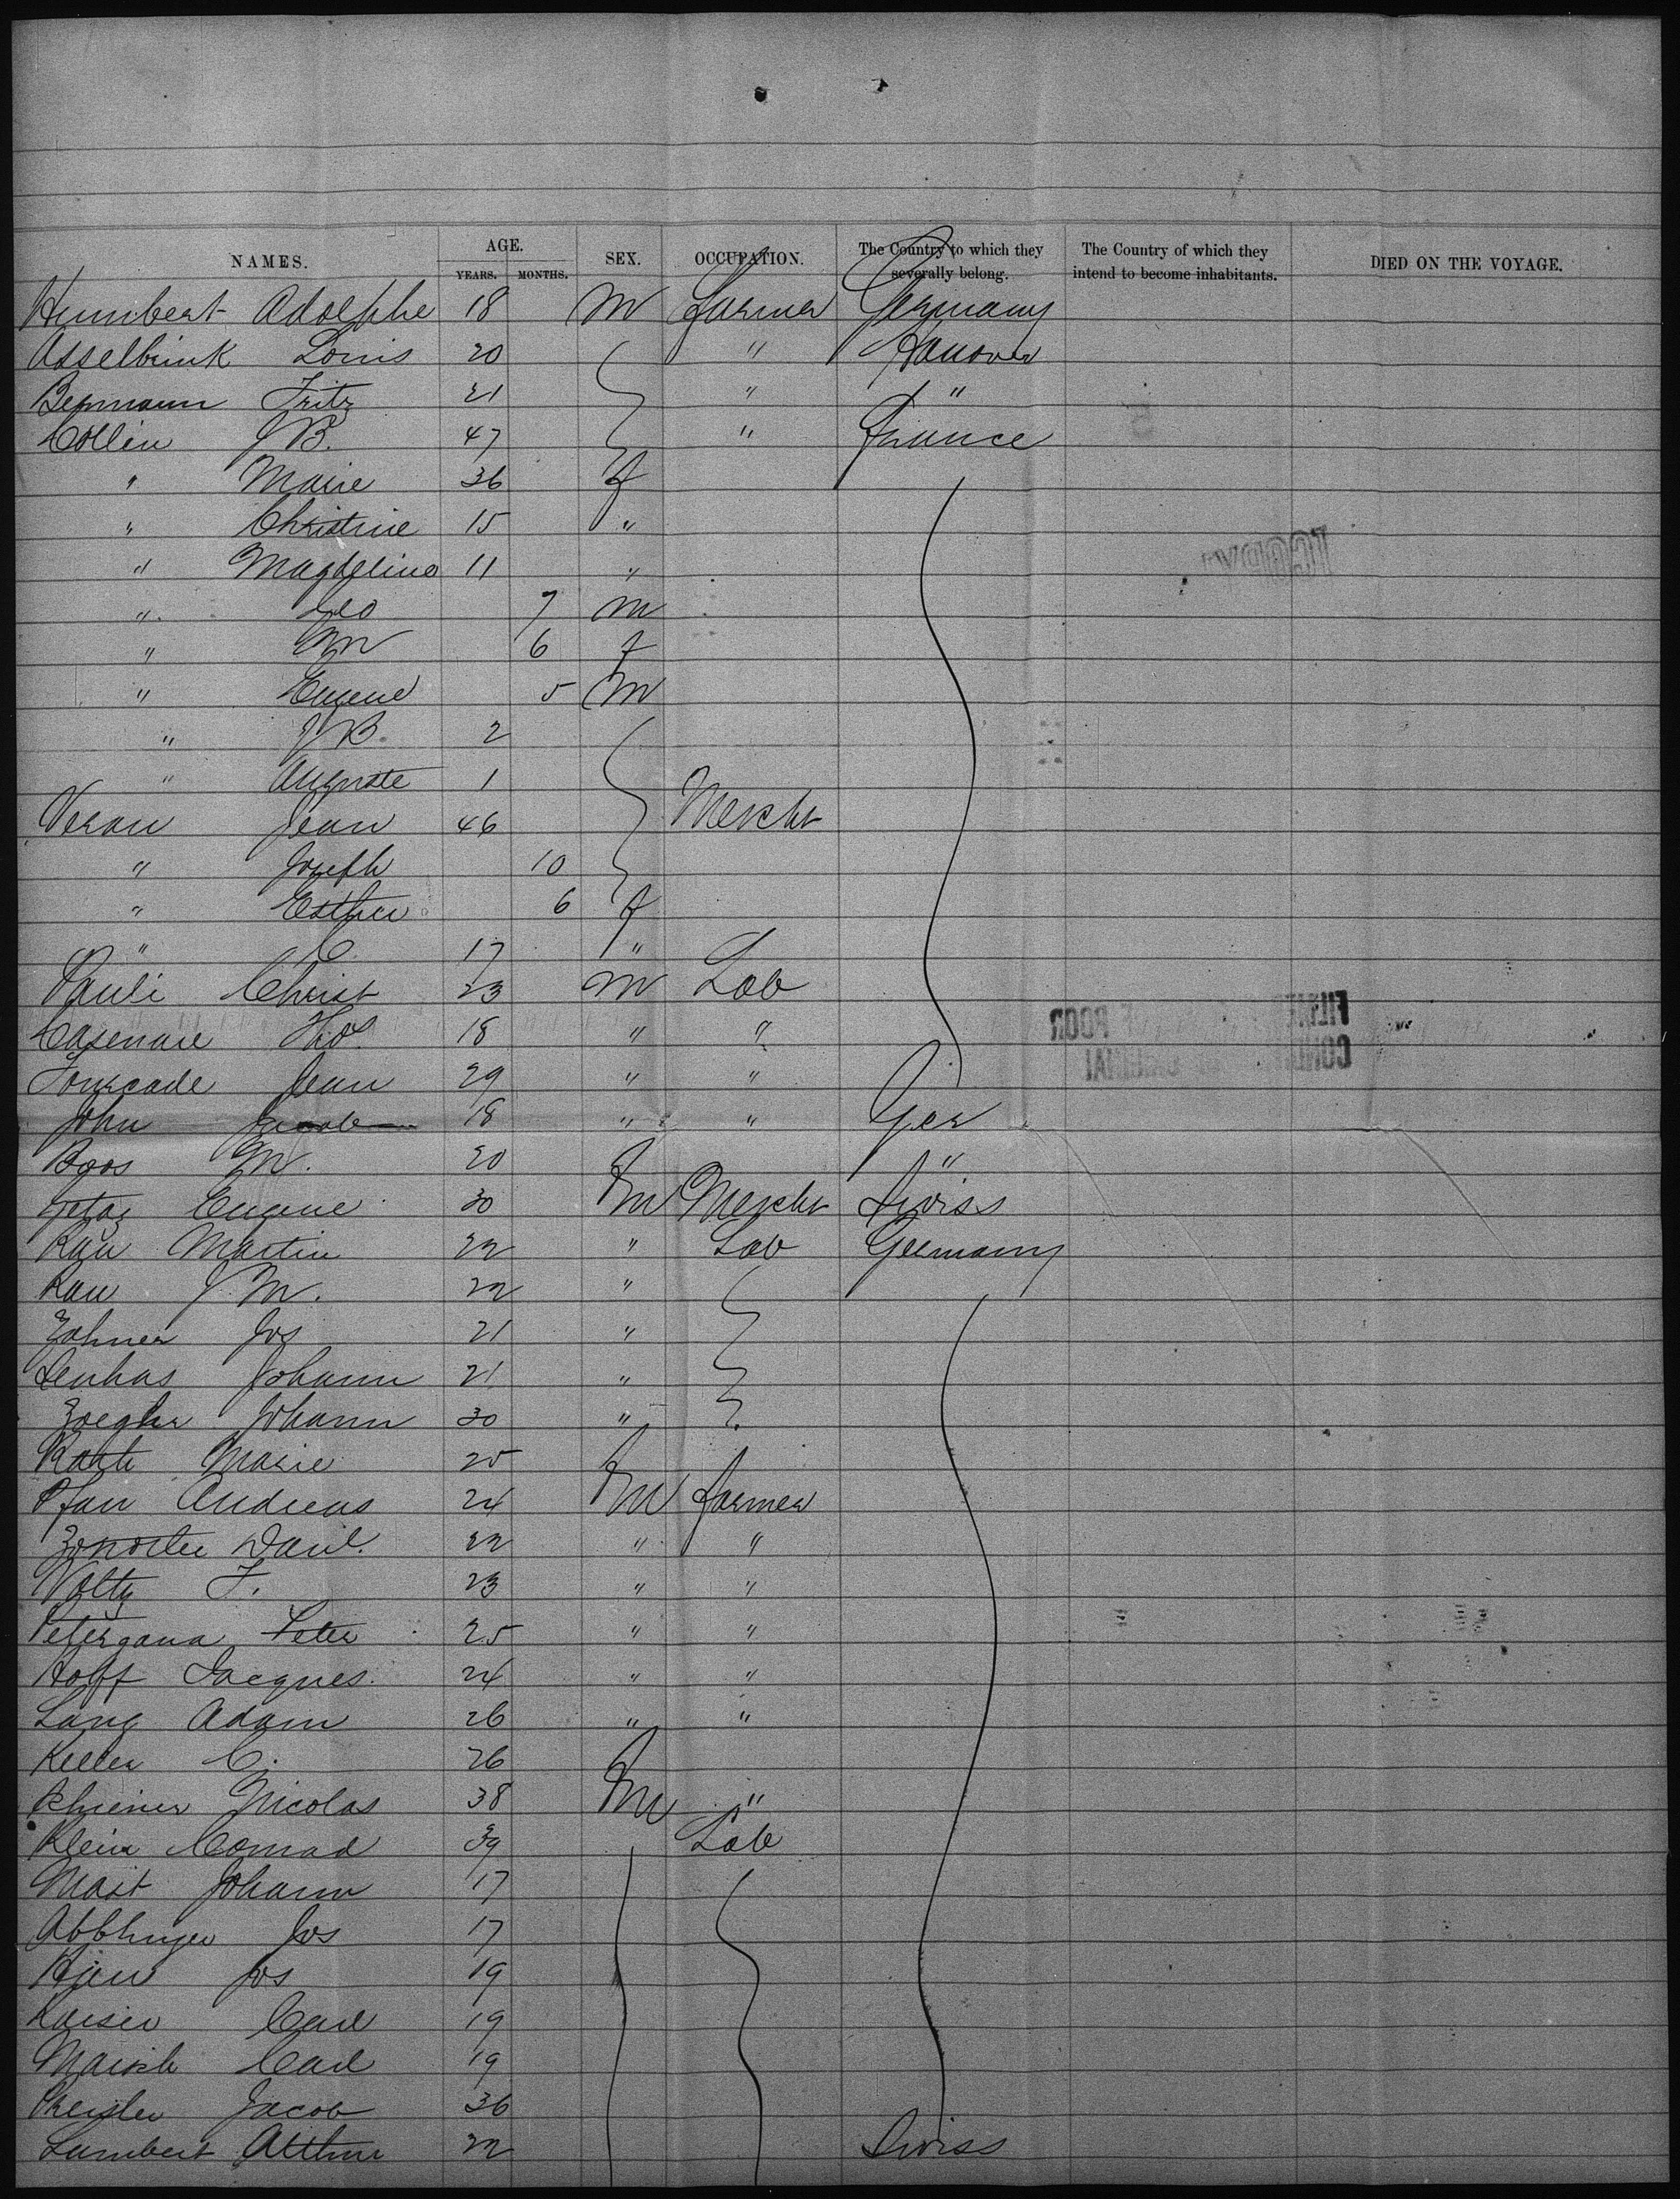 NAMES. AGE. SEX. OCCUPATION. The Country to which they severally belong. The Country of which they intend to become inhabitants. DIED ON THE VOYAGE.
YEARS. MONTHS.
Humbert Adolphe 18 M Farmer Germany
Asselbrink Louis 20 " Hanover
Bermann Fritz 21 " "
Collin J B. 47 " France
" Marie 36 f
" Christine 15 "
" Magdeline 11 "
" Leo 7 m
" M 6 f
" Eugene 5 M
" J B. 2
" Auguste 1
Veran Jean 46 Mercht
" Joseph 10
" Esther 6 f
" C. 17 "
Pauli Christ 23 M Lab
Casenave Thos. 18 " "
Fourcade Jean 29 " "
John Jacob 18 " " Ger
Boos M. 20 "
Getaz Eugene 30 M Mercht Swiss
Rau Martin 22 " Lab Germany
Rau J. M. 22 "
Zahner Jos 21 "
Lenhas Johann 21 "
Johann 30 "
Marie 25
Pfau Andreas 24 M Farmer
Danl. 22 " "
Volty F. 23 " "
Petergana Peter 25 " "
Hoff Jacques. 24 " "
Lang Adam 26 " "
Keller C. 26
Nicolas 38 M "
Klein Conrad 39 Lab
Mast Johann 17
Jos 17
Jos 19
Kaiser Carl 19
Carl 19
Jacob 36
Lambert Arthur 22 Swiss